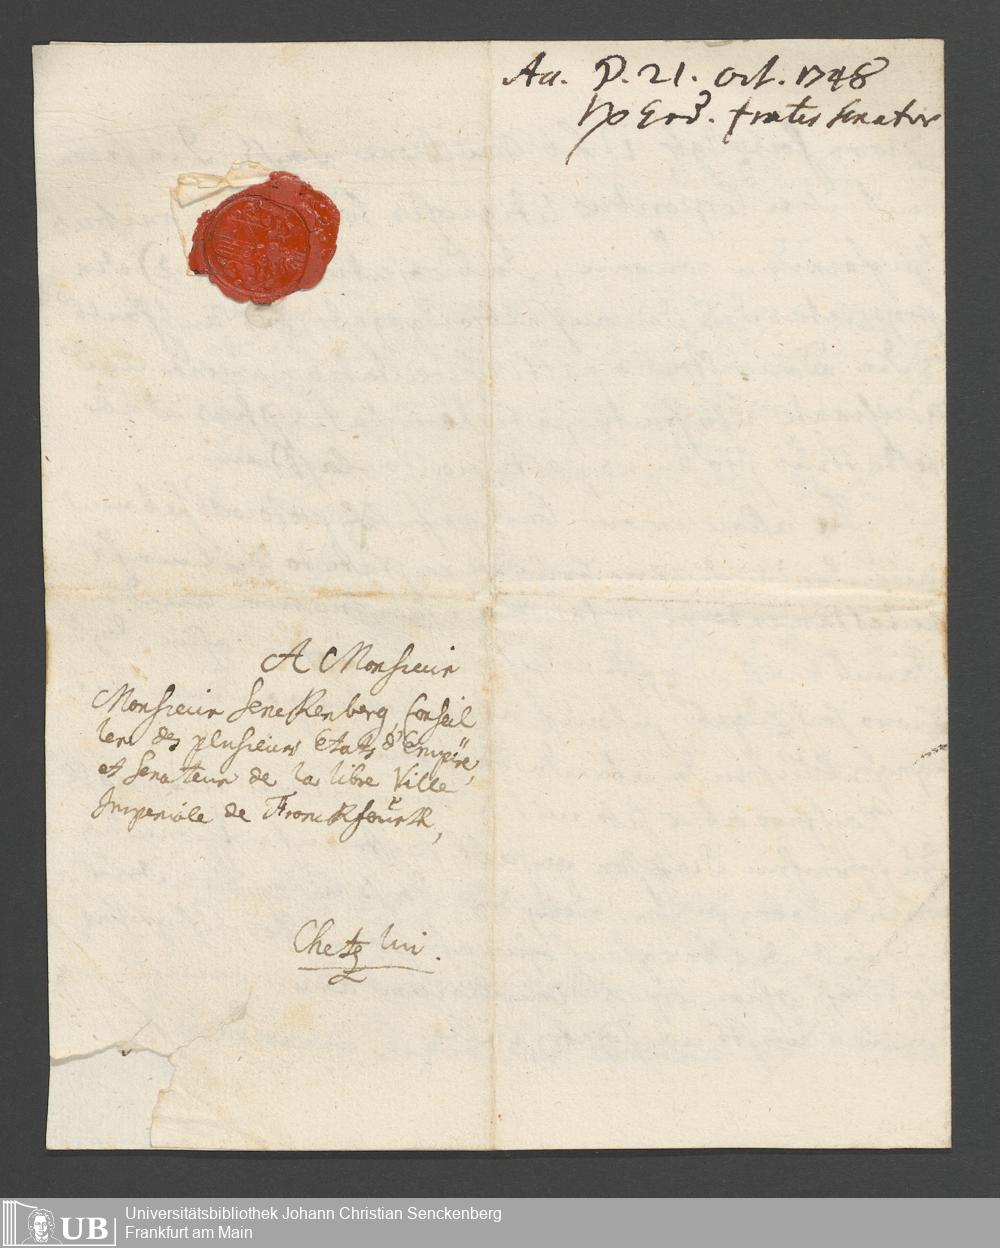 P. 21. Oct. 1748
frater Senator
A Monsieur
Monsieur Senckenberg, Conseil
lere des plusieurs Etats d'Empire,
et Senateur de la libre Ville
Imperiale de Franckfourth,
Chetz lui.
UB
Universitätsbibliothek Johann Christian Senckenberg
Frankfurt am Main